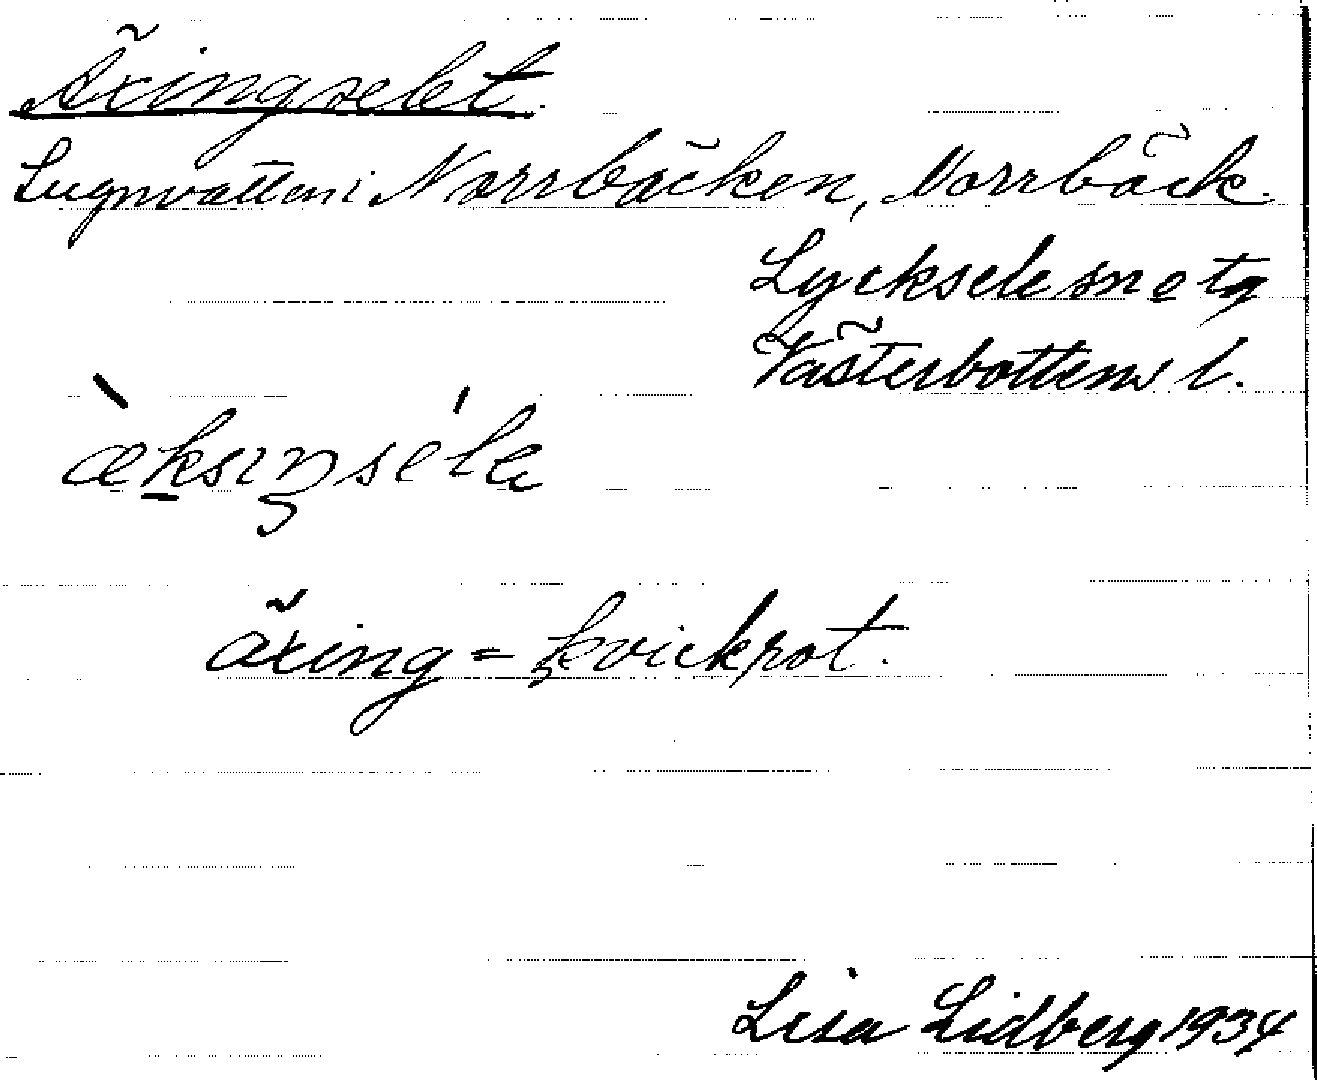 Äxingselet.
Lugnvatten i Norrbäcken, Norrbäck.
Lycksele sn etg
Västerbottens l.
æ̀ksiŋsélę
äxing = kvickrot.
Lisa Lidberg 1934